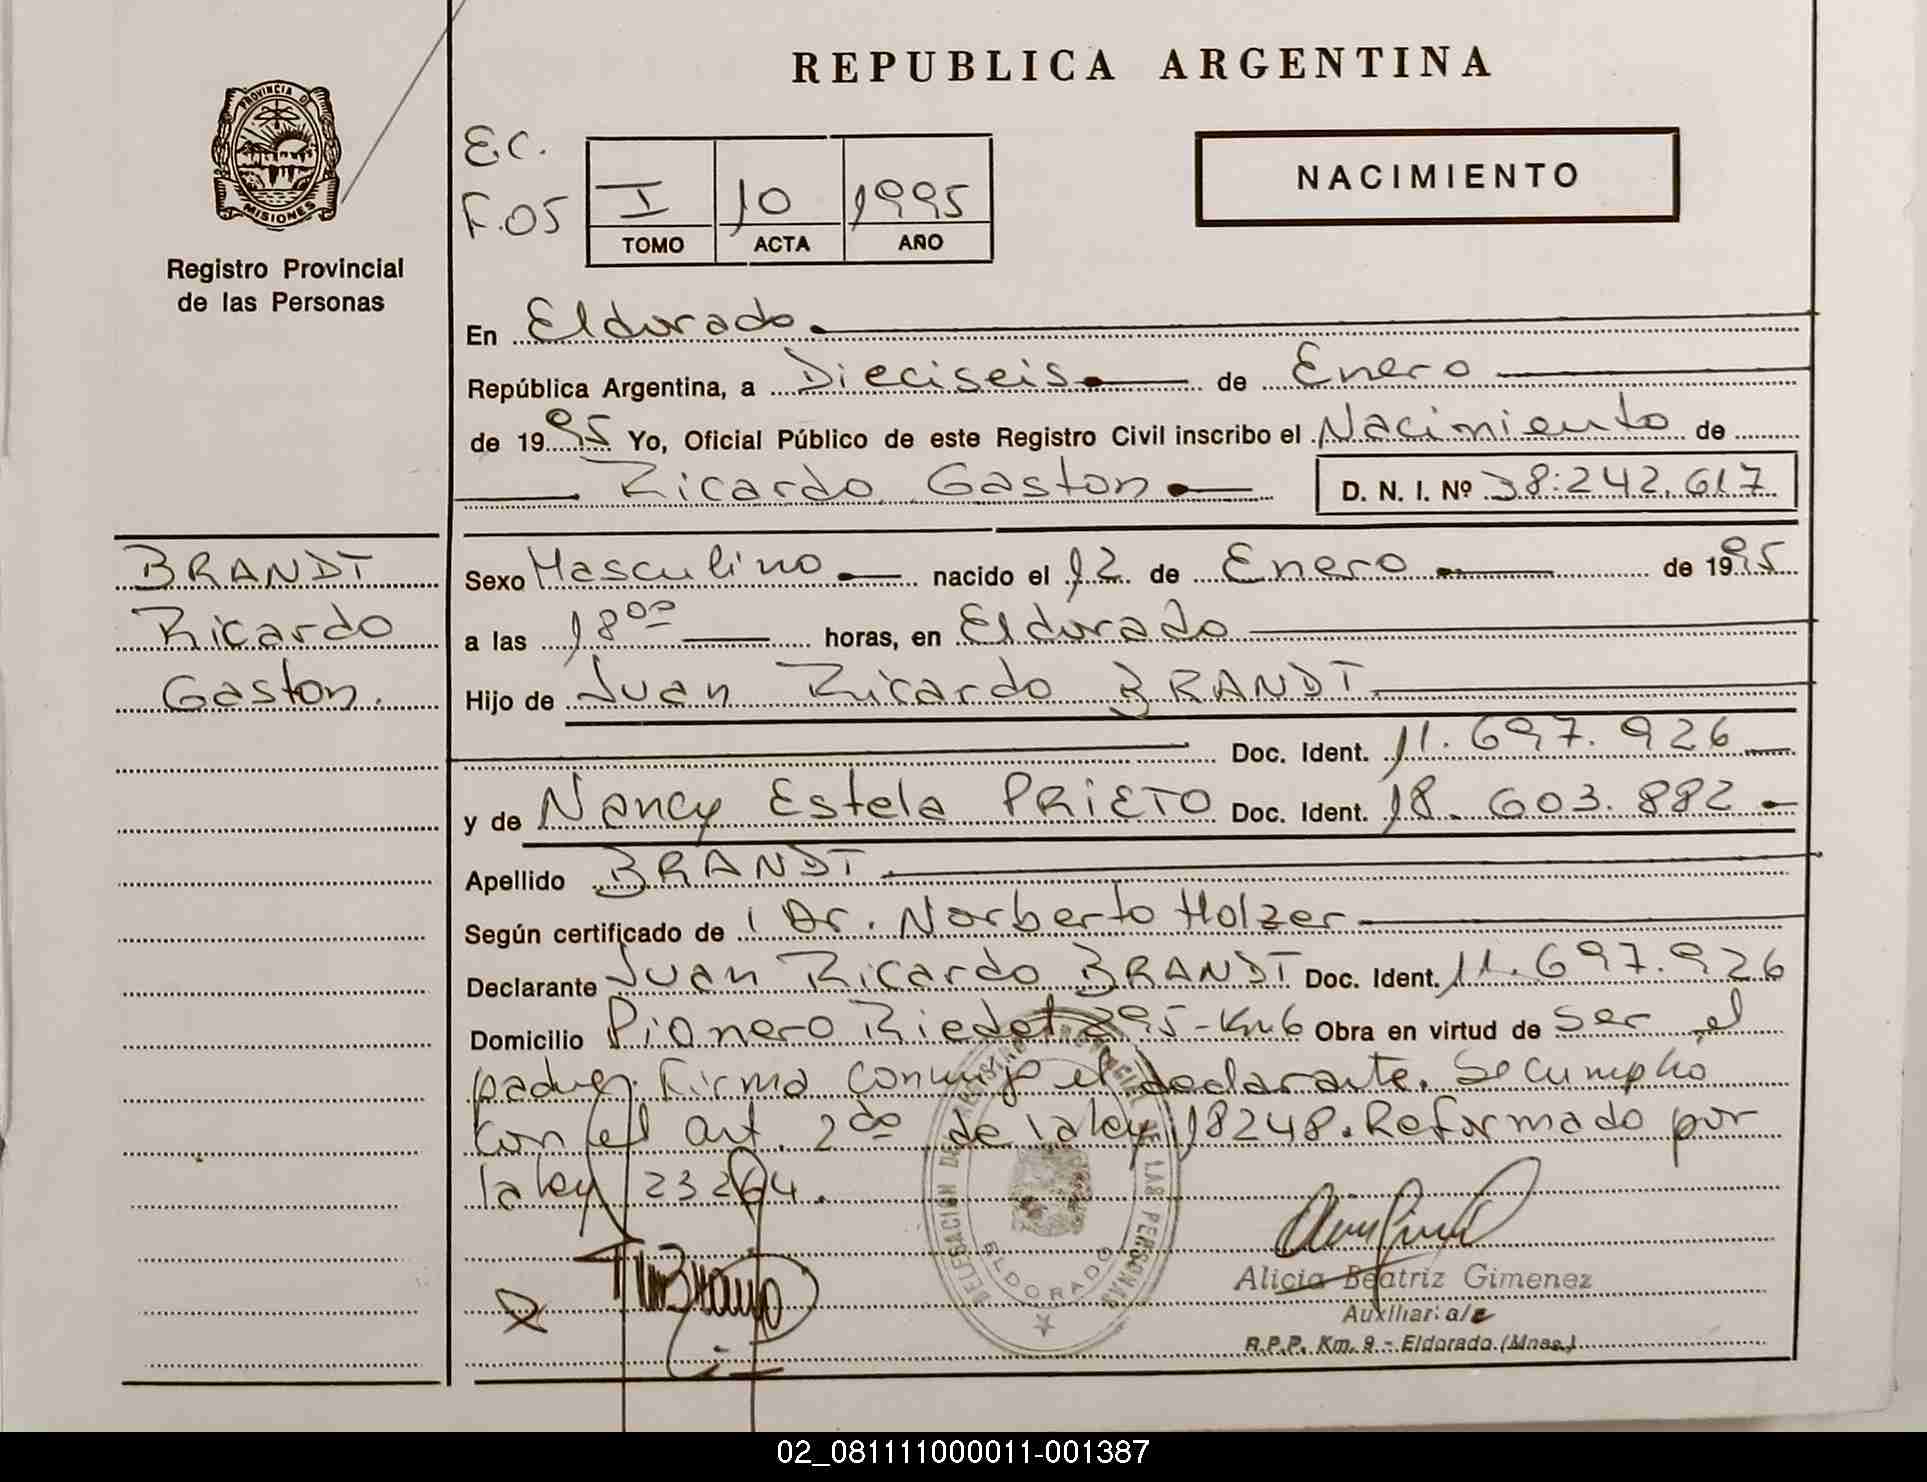 REPUBLICA ARGENTINA
PROVINCIA D
MISIONES
Registro Provincial
de las Personas
E.C.
F.05
I 10 1995
TOMO ACTA AÑO
NACIMIENTO
En Eldorado
República Argentina, a Dieciseis de Enero
de 1995 Yo, Oficial Público de este Registro Civil inscribo el Nacimiento de
Ricardo Gaston D. N. I. Nº 38.242.617
BRANDT
Ricardo
Gaston.
Sexo Masculino nacido el 12 de Enero de 1995
a las 18 00 horas, en Eldorado
Hijo de Juan Ricardo BRANDT
Doc. Ident. 11.697.926
y de Nancy Estela PRIETO Doc. Ident. 18.603.882
Apellido BRANDT
Según certificado de Dr. Norberto Holzer
Declarante Juan Ricardo BRANDT Doc. Ident. 11.697.926
Domicilio Pionero Riedel 295-Km6 Obra en virtud de ser el
padre. Firma conmigo el declarante. Se cumplió
con el art. 2do de la ley 18248. Reformado por
la ley 23264.
DELEGACIÓN DE REGISTRO PROVINCIAL DE LAS PERSONAS
ELDORADO
Alicia Beatriz Gimenez
Auxiliar a/c
R.P.P. Km. 9 - Eldorado (Mnes.)
02_081111000011-001387